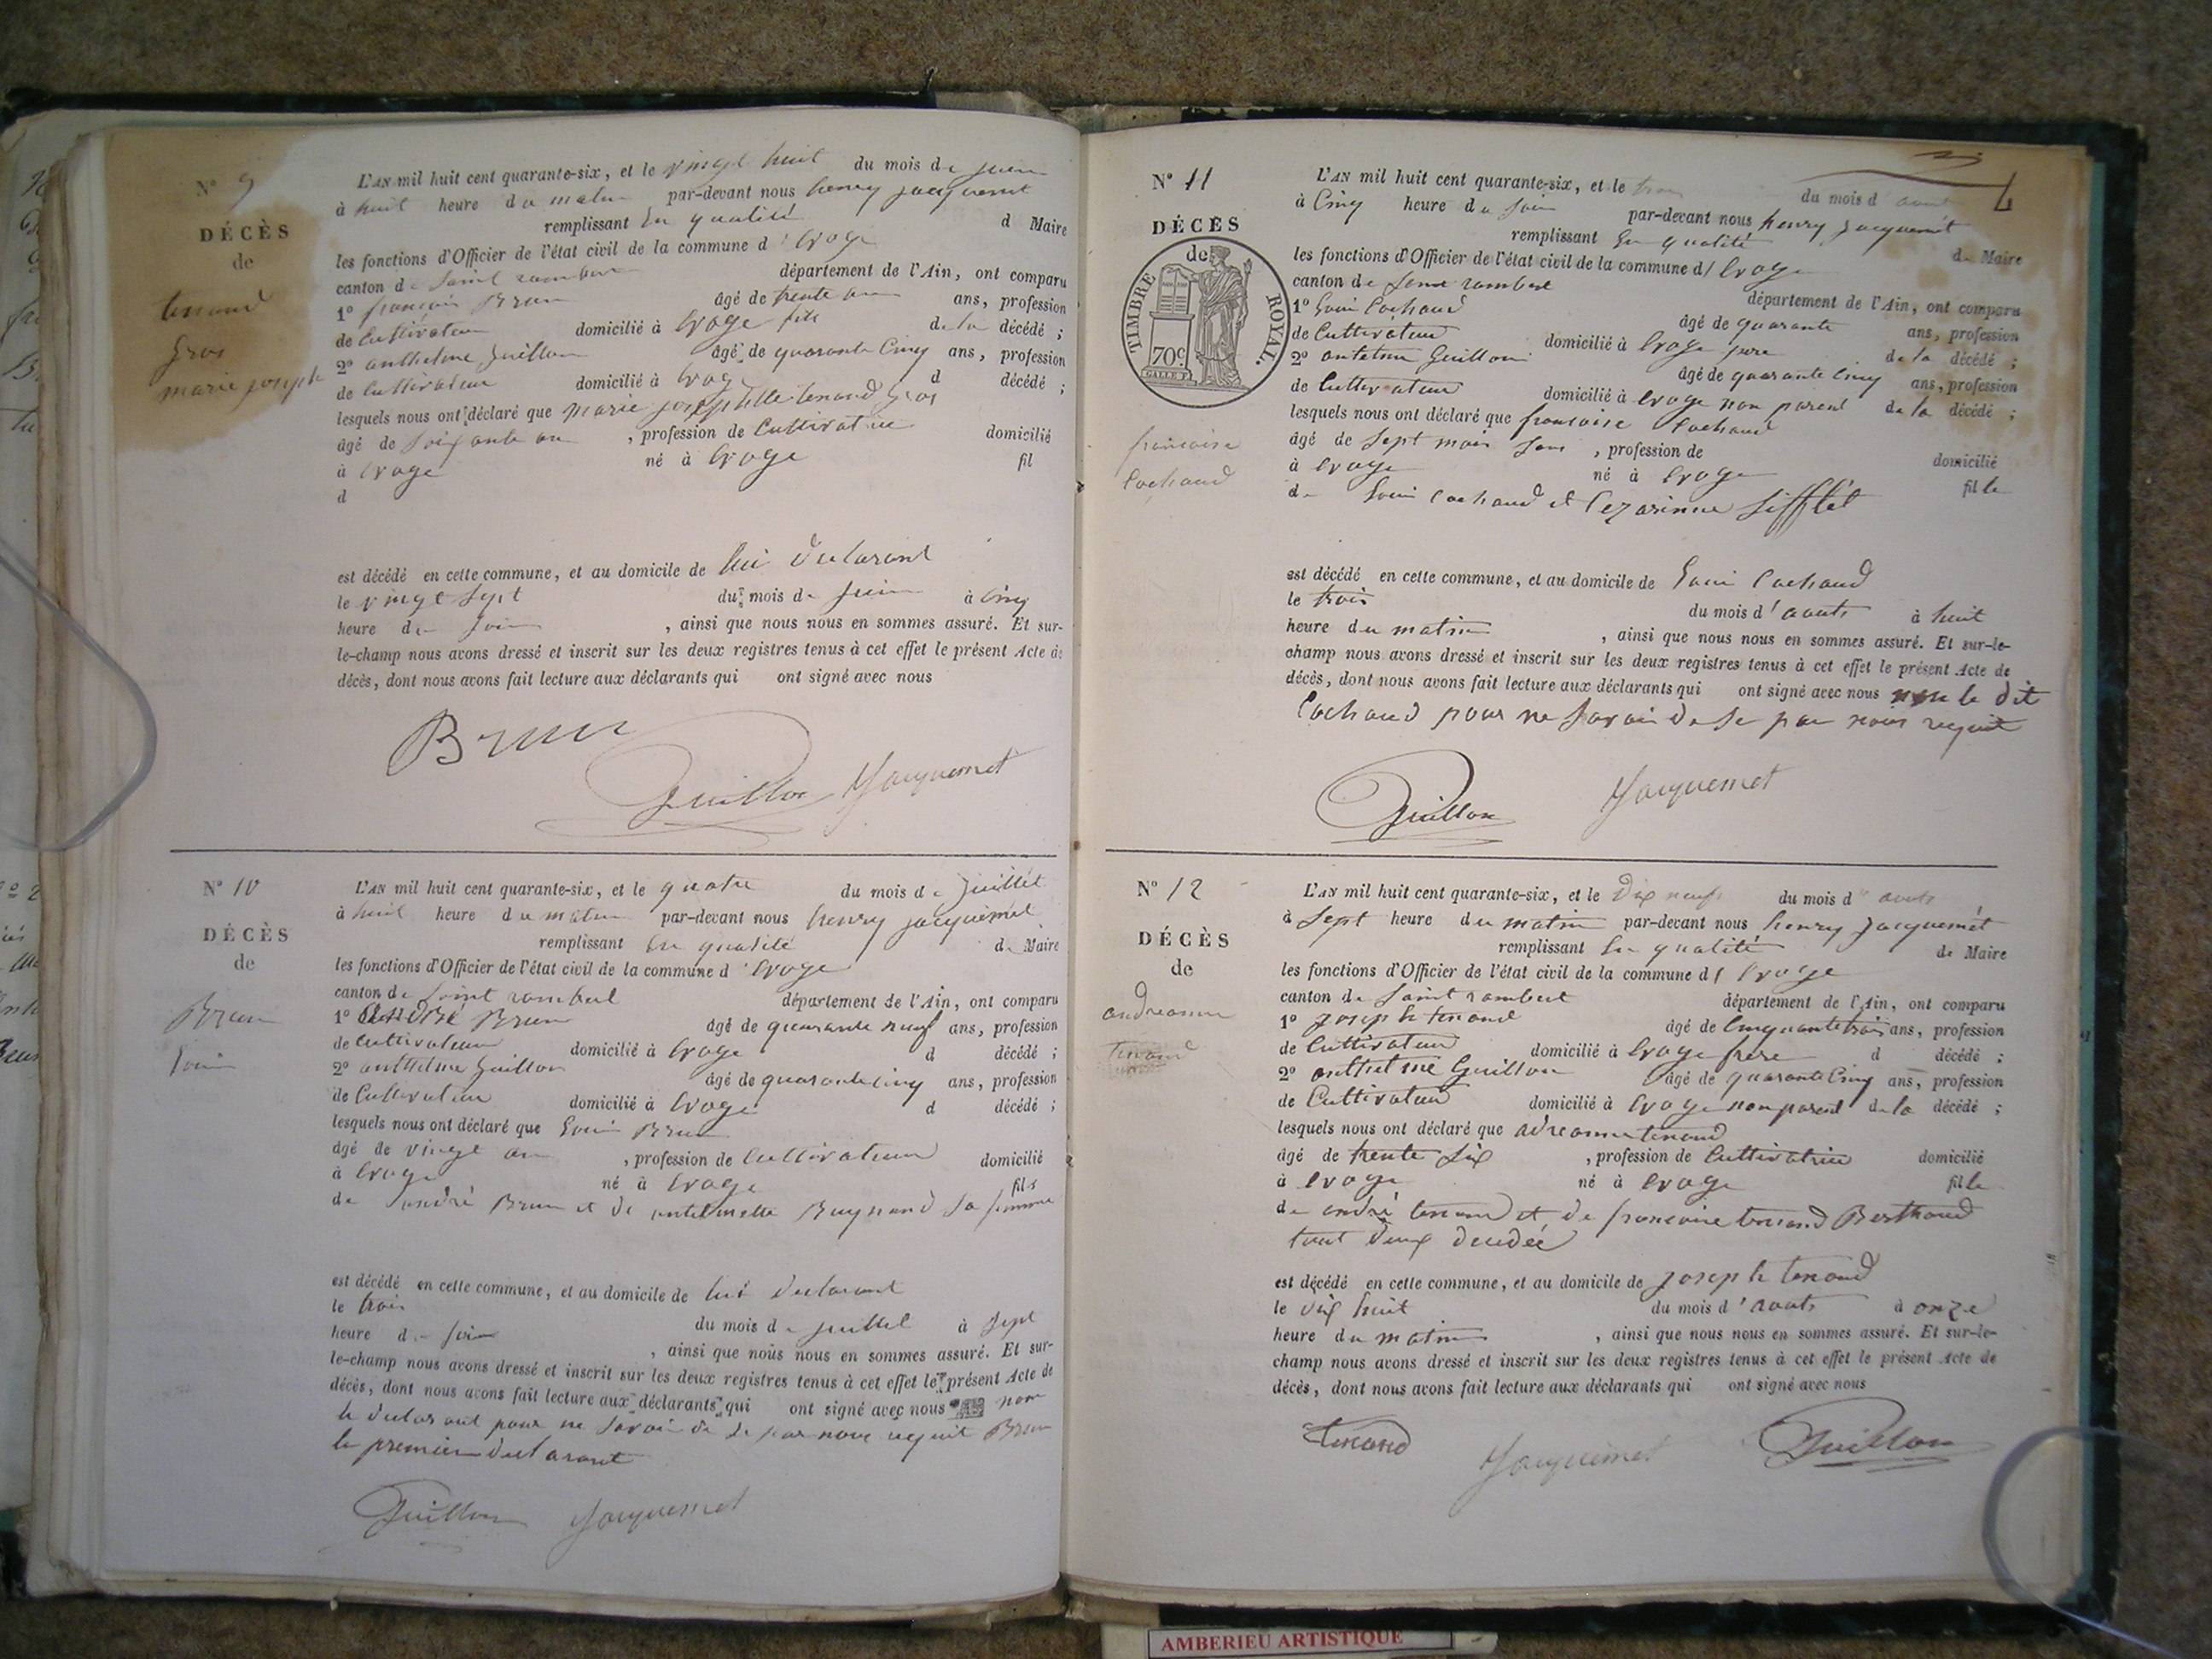 N° 9
DÉCÈS
de
tenand
gros
marie joseph
L'AN mil huit cent quarante-six, et le vingt huit du mois de juin
à huit heure du matin par-devant nous henry jacquemet
remplissant En qualité d Maire
les fonctions d'Officier de l'état civil de la commune d' Evoge
canton de Saint rambert département de l'Ain, ont comparu
1° françois Brun âgé de trente ans, profession
de Cultivateur domicilié à Evoge fils de la décédé ;
2° anthelme guillon âgé de quarante Cinq ans, profession
de Cultivateur domicilié à Evoge d décédé ;
lesquels nous ont déclaré que marie tenand gros
âgé de Soixante an , profession de Cultivatrice domicilié
à Evoge né à Evoge fil
d
est décédé en cette commune, et au domicile de lui declarant
le vingt Sept du mois de juin à Cinq
heure de Soir , ainsi que nous nous en sommes assuré. Et sur-
le-champ nous avons dressé et inscrit sur les deux registres tenus à cet effet le présent Acte de
décès, dont nous avons fait lecture aux déclarants qui ont signé avec nous
Brun
Guillon Jacquemet
N° 10
DÉCÈS
de
Brun
Louis
L'AN mil huit cent quarante-six, et le quatre du mois de Juillet
à huit heure du matin par-devant nous henry jacquemet
remplissant En qualité de Maire
les fonctions d'Officier de l'état civil de la commune d' Evoge
canton de Saint rambert département de l'Ain, ont comparu
1° Brun âgé de quarante neuf ans, profession
de Cultivateur domicilié à Evoge d décédé ;
2° anthelme guillon âgé de quarante Cinq ans, profession
de Cultivateur domicilié à Evoge d décédé ;
lesquels nous ont déclaré que Louis Brun
âgé de vingt an , profession de Cultivateur domicilié
à Evoge né à Evoge fils
de andré Brun et de antelmette Reymond Sa femme
est décédé en cette commune, et au domicile de lui declarant
le trois du mois de juillet à Sept
heure de Soir , ainsi que nous nous en sommes assuré. Et sur-
le-champ nous avons dressé et inscrit sur les deux registres tenus à cet effet le présent Acte de
décès, dont nous avons fait lecture aux déclarants qui ont signé avec nous non
le declarant pour ne Savoir de Se par nous requit Brun
le premier declarant
Guillon Jacquemet
N° 11
DÉCÈS
de
TIMBRE ROYAL.
70c
francoise
Cochaud
L'AN mil huit cent quarante-six, et le trois du mois d aout
à Cinq heure du Soir par-devant nous henry jacquemet
remplissant En qualité de Maire
les fonctions d'Officier de l'état civil de la commune d' Evoge
canton de Saint rambert département de l'Ain, ont comparu
1° Louis Cochaud âgé de quarante ans, profession
de Cultivateur domicilié à Evoge pere de la décédé ;
2° antelme Guillon âgé de quarante Cinq ans, profession
de Cultivateur domicilié à Evoge non parent de la décédé ;
lesquels nous ont déclaré que francoise Cochaud
âgé de Sept mois Sans , profession de domicilié
à Evoge né à Evoge fille
de Louis Cochaud et Cezarinne Sifflet
est décédé en cette commune, et au domicile de Louis Cochaud
le trois du mois d'aouts à huit
heure du matin , ainsi que nous nous en sommes assuré. Et sur-le-
champ nous avons dressé et inscrit sur les deux registres tenus à cet effet le présent Acte de
décès, dont nous avons fait lecture aux déclarants qui ont signé avec nous non le dit
Cochaud pour ne Savoir de Se par nous requit
Guillon Jacquemet
N° 12
DÉCÈS
de
andreanne
tenand
L'AN mil huit cent quarante-six, et le Dix neuf du mois d' aouts
à Sept heure du matin par-devant nous henry Jacquemet
remplissant En qualité de Maire
les fonctions d'Officier de l'état civil de la commune d' Evoge
canton de Saint rambert département de l'Ain, ont comparu
1° joseph tenand âgé de Cinquante trois ans, profession
de Cultivateur domicilié à Evoge frere d décédé ;
2° anthelme Guillon âgé de quarante Cinq ans, profession
de Cultivateur domicilié à Evoge non parent de la décédé ;
lesquels nous ont déclaré que adreanne tenand
âgé de trente Six , profession de Cultivatrice domicilié
à Evoge né à Evoge fille
de andré tenand et de francoise tenand Berthaud
tout deux decédée
est décédé en cette commune, et au domicile de joseph tenand
le dix huit du mois d'aouts à onze
heure du matin , ainsi que nous nous en sommes assuré. Et sur-le-
champ nous avons dressé et inscrit sur les deux registres tenus à cet effet le présent Acte de
décès, dont nous avons fait lecture aux déclarants qui ont signé avec nous
tenand Jacquemet Guillon
AMBERIEU ARTISTIQUE